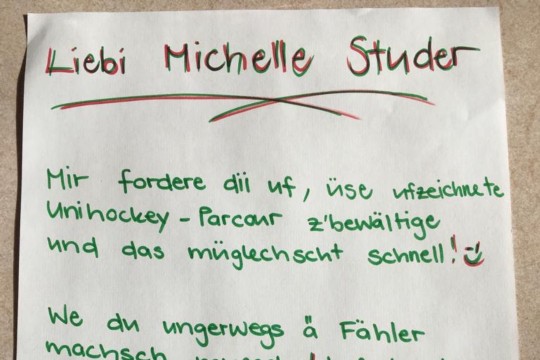 Liebi Michelle Studer
Mir fordere dii uf, üse ufzeichnete
Unihockey-Parcour z'bewältige
und das müglechscht schnell!
We du ungerwegs ä Fähler
machsch